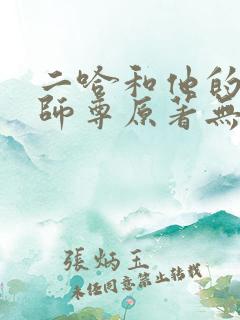 二哈和他的
師尊原著無
張炳玉
未經同意禁止轉載